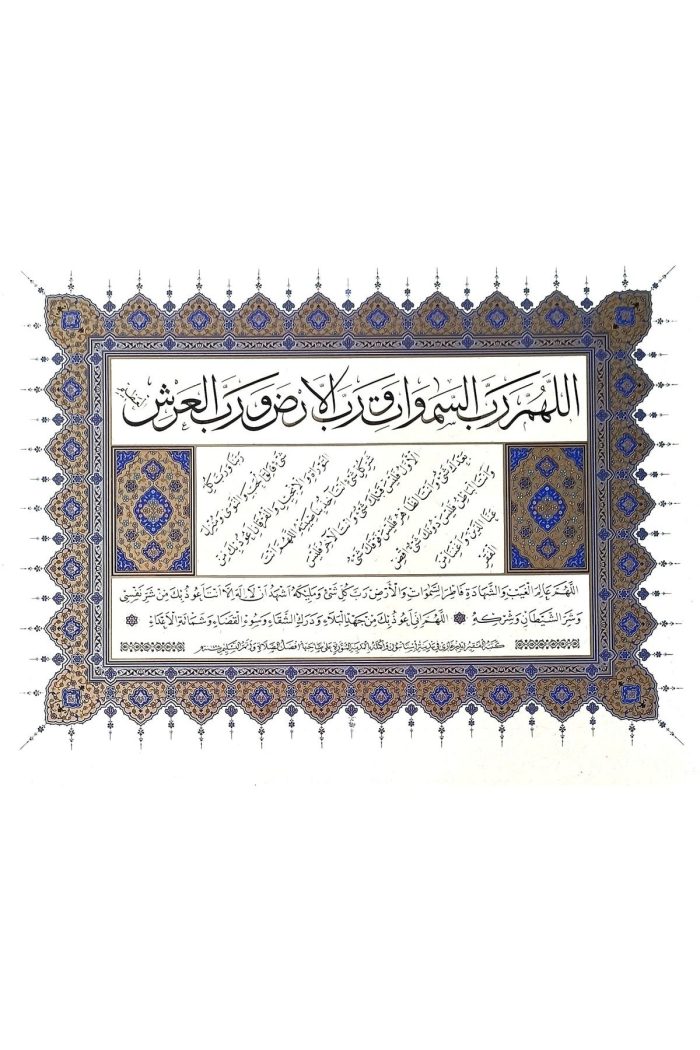 اللهم رب السموات ورب الارض ورب العرش
العظيم
ربنا ورب كل
شئ فالق الحب والنوى ومنزل
التورية والانجيل والفرقان اعوذ بك من
شر كل شئ انت آخذ بناصيته اللهم انت
الاول فليس قبلك شئ وانت الآخر فليس
بعدك شئ وانت الظاهر فليس فوقك شئ
وانت الباطن فليس دونك شئ اقض
عنا الدين واغننا من
الفقر
اللهم عالم الغيب والشهادة فاطر السموات والأرض رب كل شئ ومليكه اشهد ان لا اله الا انت اعوذ بك من شر نفسي
وشر الشيطان وشركه اللهم اني اعوذ بك من جهد البلاء ودرك الشقاء وسوء القضاء وشماتة الأعداء
كتبه الفقير